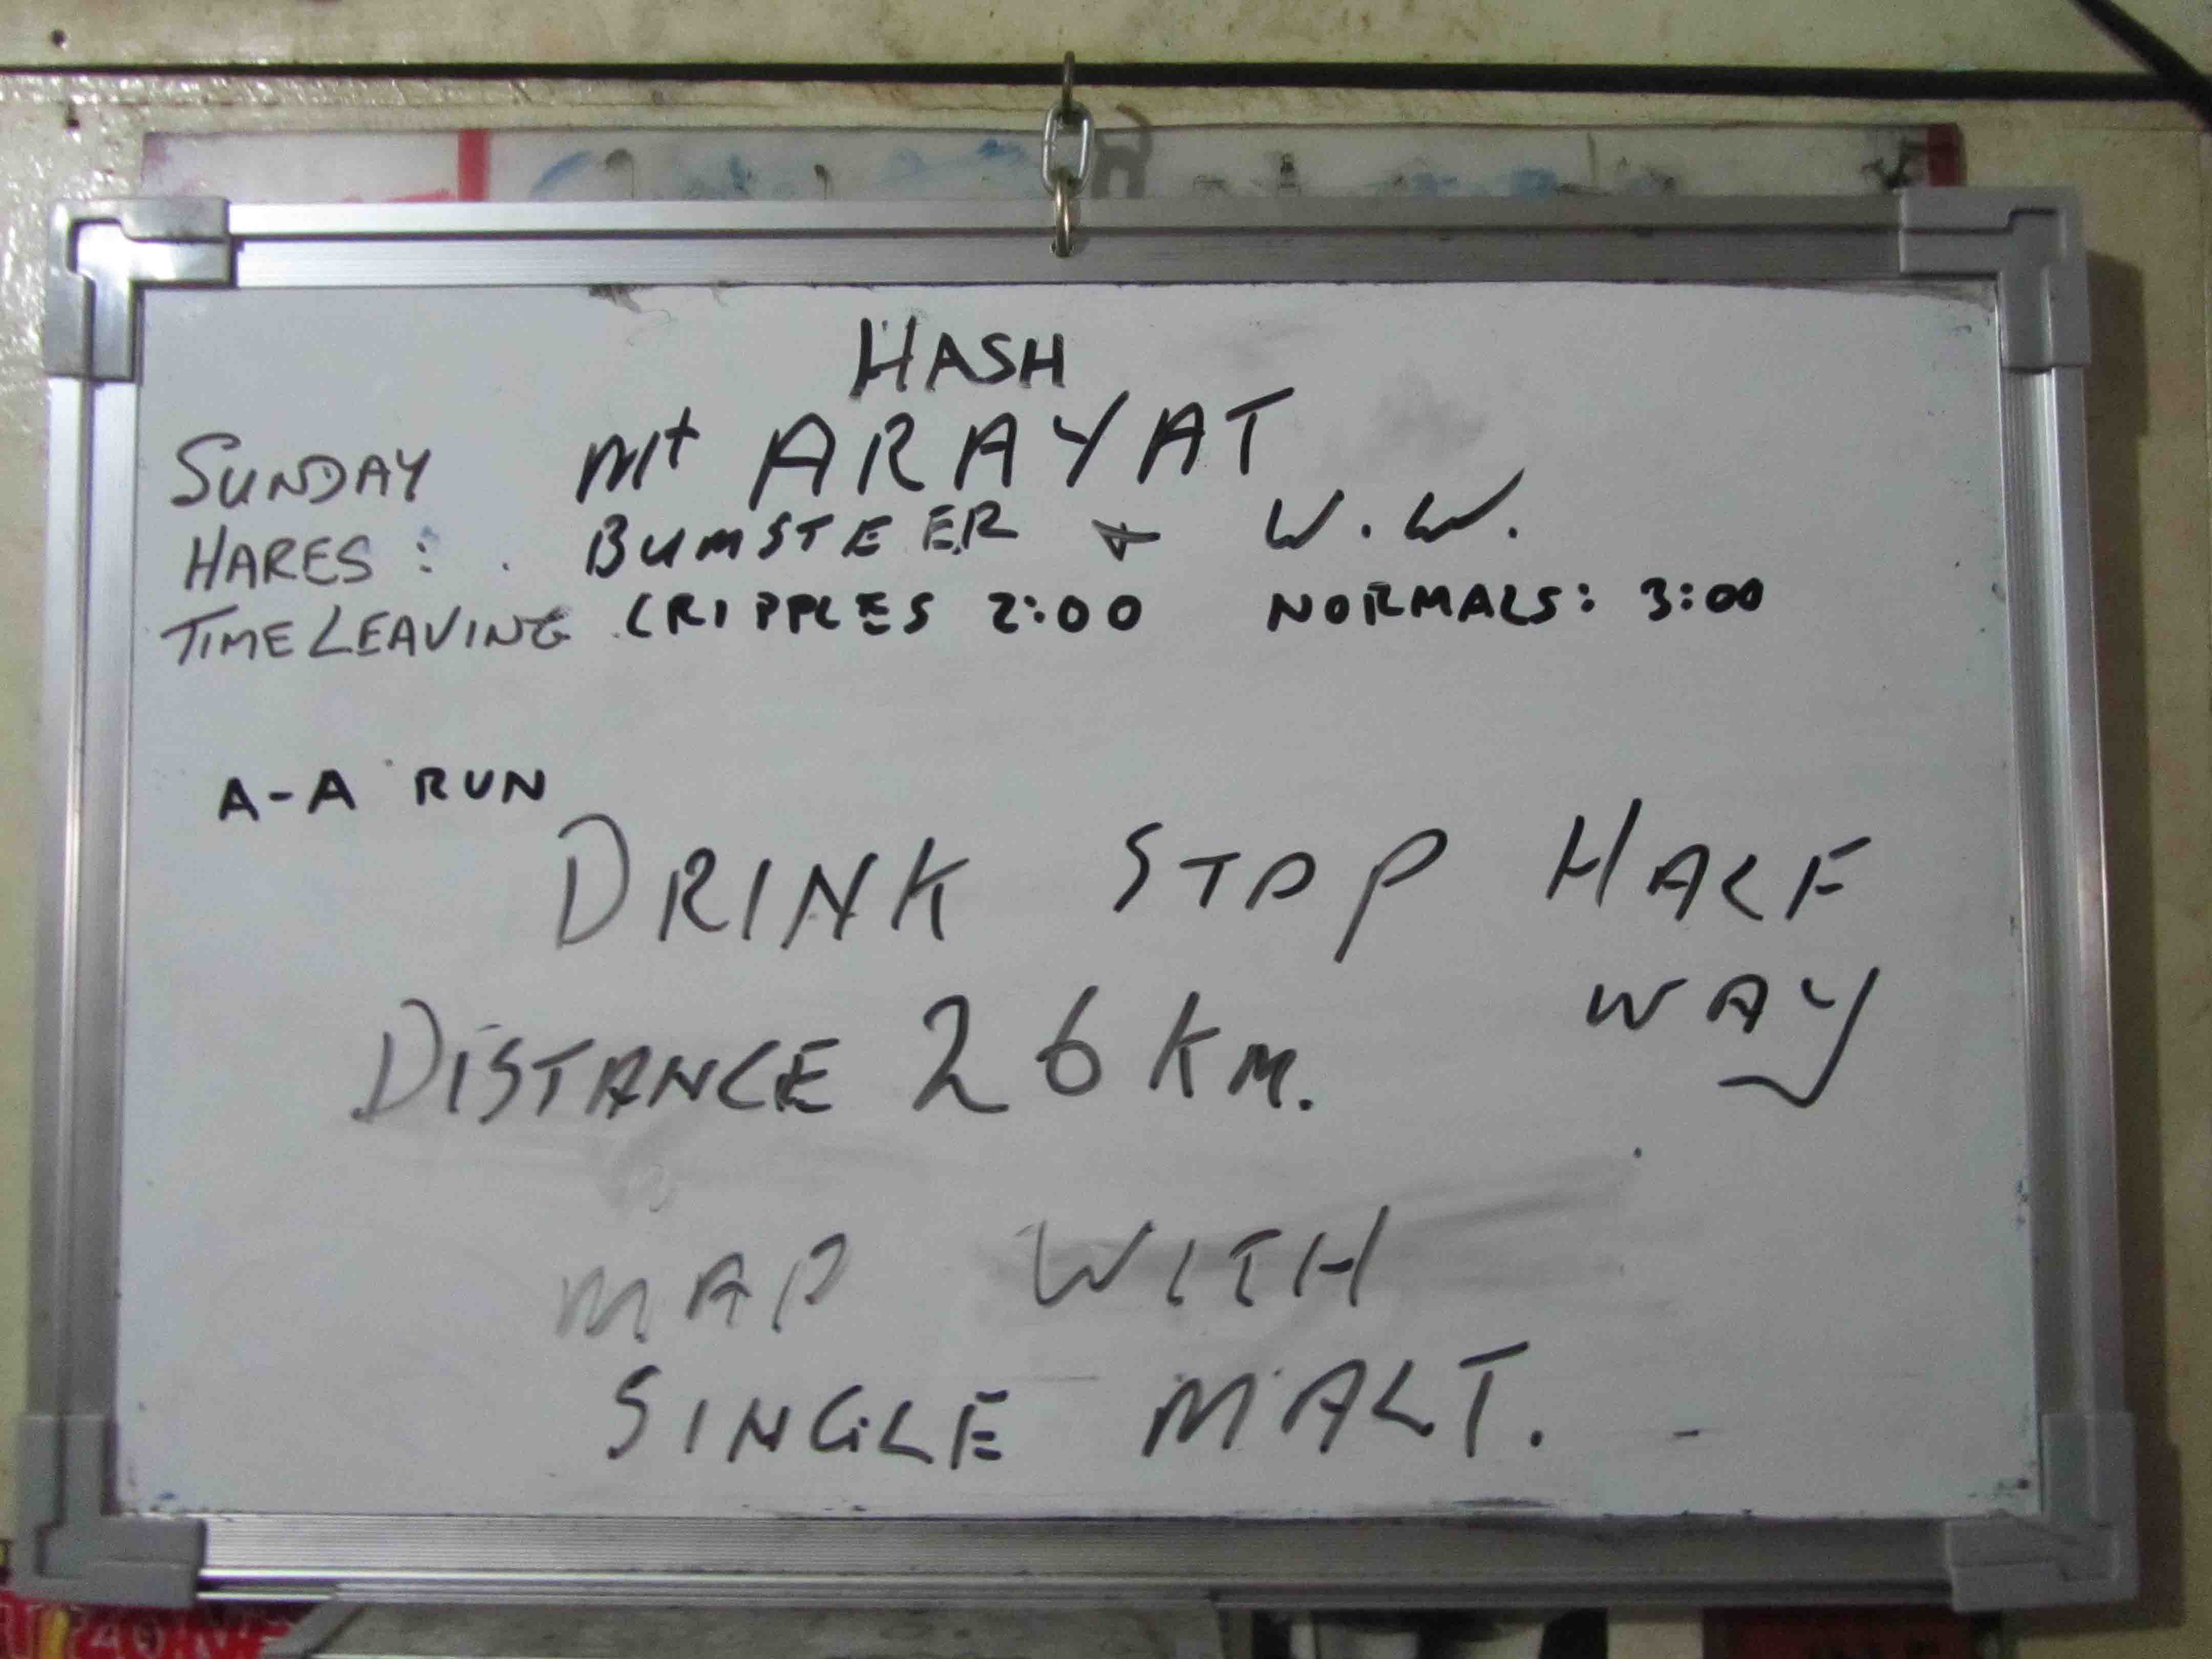 HASH
SUNDAY Mt ARAYAT
HARES: BUMSTEER & W.W.
TIME LEAVING CRIPPLES 2:00 NORMALS: 3:00
A-A RUN
DRINK STOP HALF
WAY
DISTANCE 26 KM.
MAP WITH
SINGLE MALT.